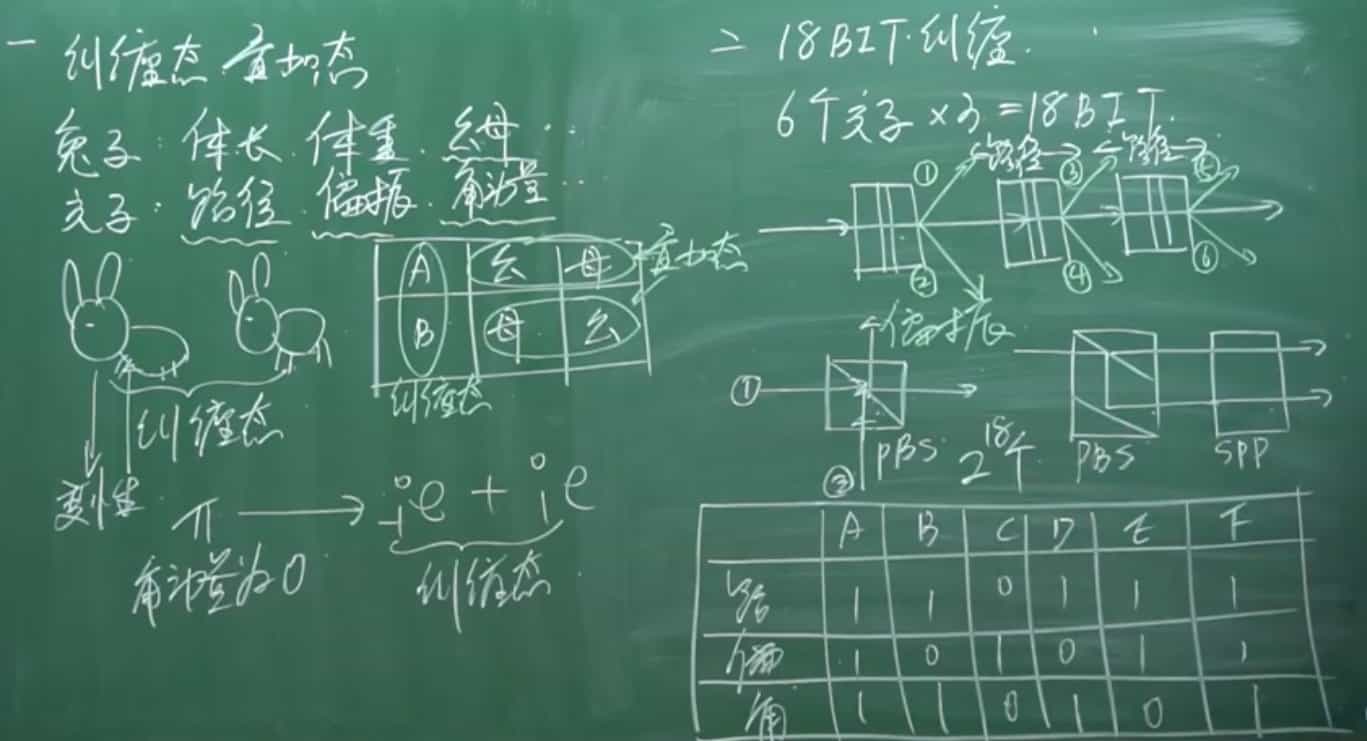 一 纠缠态 叠加态
兔子：体长.体重.公母...
光子：路径.偏振.角动量...
A 公 母 叠加态
B 母 公
纠缠态
纠缠态
变性
π → e + e
角动量为0
纠缠态
二 18BIT.纠缠.
6个光子×3=18BIT.
路径 路径
① ③ ⑤
② ④ ⑥
偏振
①
②
PBS 2^18个 PBS SPP
A B C D E F
路 1 1 0 1 1 1
偏 1 0 1 0 1 1
角 1 1 0 1 0 1